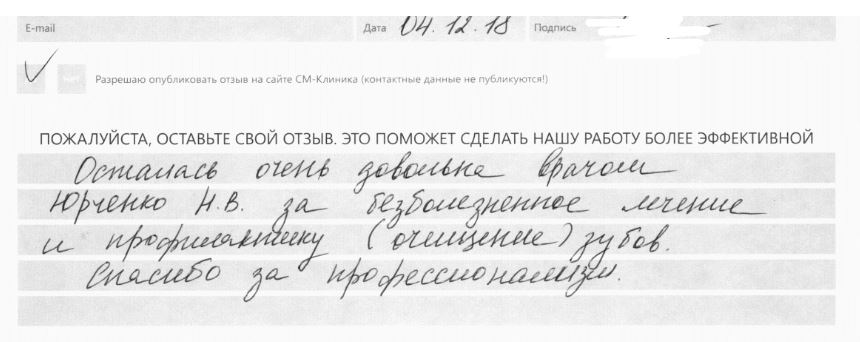 E-mail Дата 04.12.18 Подпись
Разрешаю опубликовать отзыв на сайте СМ-Клиника (контактные данные не публикуются!)
ПОЖАЛУЙСТА, ОСТАВЬТЕ СВОЙ ОТЗЫВ. ЭТО ПОМОЖЕТ СДЕЛАТЬ НАШУ РАБОТУ БОЛЕЕ ЭФФЕКТИВНОЙ
Осталась очень довольна врачом
Юрченко Н.В. за безболезненное лечение
и профилактику (очищение) зубов.
Спасибо за профессионализм.